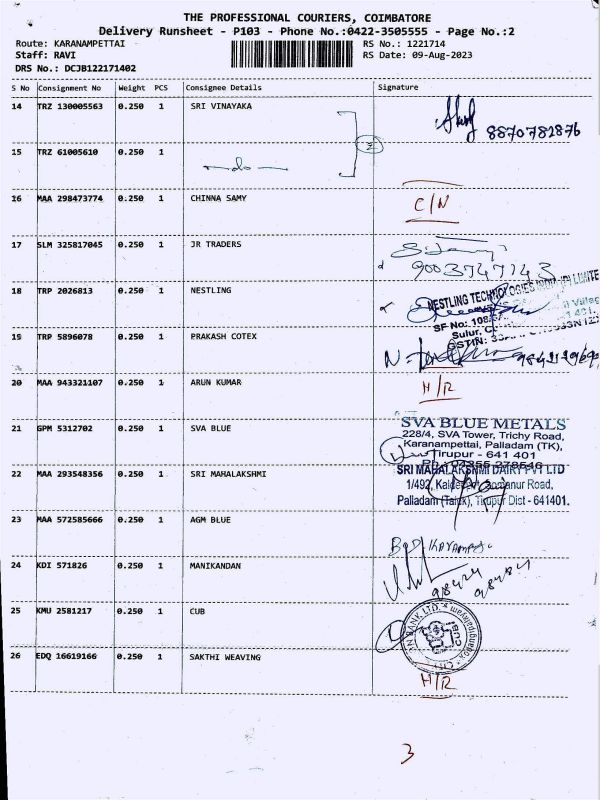 THE PROFESSIONAL COURIERS, COIMBATORE
Delivery Runsheet - P103 - Phone No.:0422-3505555 - Page No.:2
Route: KARANAMPETTAI RS No.: 1221714
Staff: RAVI RS Date: 09-Aug-2023
DRS No.: DCJB122171402
S No Consignment No Weight PCS Consignee Details Signature
14 TRZ 130005563 0.250 1 SRI VINAYAKA
8870782876
15 TRZ 61005610 0.250 1
-do-
16 MAA 298473774 0.250 1 CHINNA SAMY C/N
17 SLM 325817045 0.250 1 JR TRADERS
9003747143
18 TRP 2026813 0.250 1 NESTLING NESTLING TECHNOLOGIES LIMITE
SF No: 108
Sulur,
GSTIN:
19 TRP 5896078 0.250 1 PRAKASH COTEX
20 MAA 943321107 0.250 1 ARUN KUMAR H/R
21 GPM 5312702 0.250 1 SVA BLUE SVA BLUE METALS
228/4, SVA Tower, Trichy Road,
Karanampettai, Palladam (TK),
Tirupur - 641 401
22 MAA 293548356 0.250 1 SRI MAHALAKSHMI SRI MAHALAKSHMI DAIRY PVT LTD
1/492, Somanur Road,
Palladam (Taluk), Tirupur Dist - 641401.
23 MAA 572585666 0.250 1 AGM BLUE
24 KDI 571826 0.250 1 MANIKANDAN
25 KMU 2581217 0.250 1 CUB
CUB
26 EDQ 16619166 0.250 1 SAKTHI WEAVING H/R
3